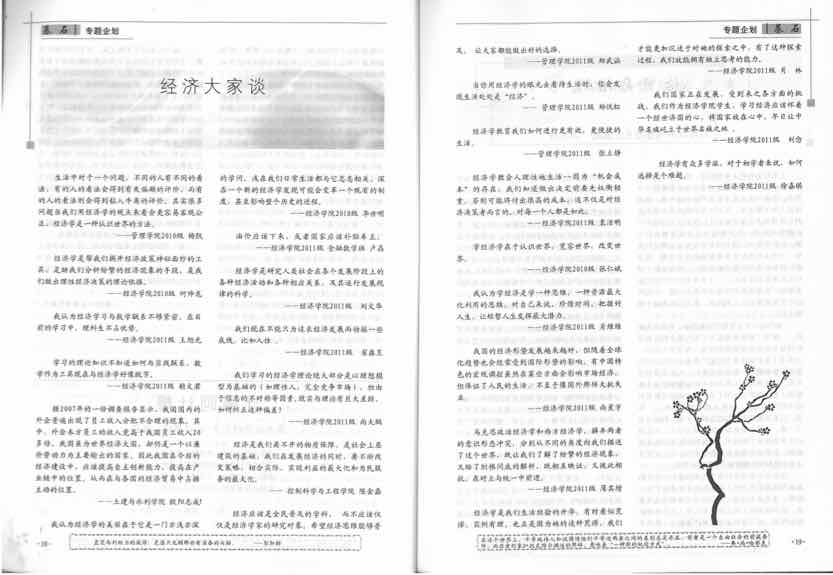 基石 专题企划
经济大家谈
生活中对于一个问题，不同的人有不同的看
法，有的人的看法会得到有失偏颇的评价，而有
的人的看法则会得到仙人千年的评价，其实很多
问题当我们用经济学的观点来看会更容易客观公
正，经济学是一种认识世界的方法。
——管理学院2010级
经济学是帮我们揭开经济政策神秘面纱的工
具，是助我们分析纷繁的经济现象的手段，是我
们做出理性经济决策的理论依据。
——经济学院2010级
我认为经济学习与数学联系不够紧密，在目
前的学习中，理科生不占优势。
——经济学院2011级 王旭光
学习的理论知识不知道如何与实践联系，数
学作为工具现在与经济学好像脱节。
——经济学院2011级
据2007年的一份调查报告显示，我国国内的
外企普遍出现了员工收入分配不合理的现象，其
中，外企本方员工的收入更高于我国员工收入24
多倍，我国虽为世界经济大国，却仍是一个以廉
价劳动力为主要输出的国家。因此我国在今后的
经济建设中，应该提高自主创新能力，提高在产
业链中的位置，从而在与各国的经济贸易中占据
主动的位置。
——土建与水利学院 欧阳志成
我认为经济学的美丽在于它是一门亦浅亦深
的学问，浅在我们日常生活都与它息息相关，深
在一个新的经济学发现可能会变革一个现有的制
度，甚至影响整个历史的进程。
——经济学院2010级
油价应该下来，或者国家应该补贴车主。
——经济学院2011级 金融数学班 卢磊
经济学是研究人类社会在各个发展阶段上的
各种经济活动和各种相应关系，及其运行发展规
律的科学。
——经济学院2011级 刘文华
我们现在不能只为追求经济发展而抛掉一些
底线，比如人性。
——经济学院2011级
我们学习的经济学理论绝大部分是以理想模
型为基础的（如理性人，完全竞争市场），但由
于信息的不对称等因素，现实与理论有且大差距，
如何纠正这种偏差？
——经济学院2011级
经济是我们离不开的物质保障，是社会上层
建筑的基础，我们在发展经济的同时，要不断改
变策略，切合实际，实现利益的最大化和为民服
务的最大化。
—— 控制科学与工程学院 陈金磊
经济应该是全民普及的学科，而不应该仅
仅是经济学家的研究对象，希望经济思维能够普
·18·
专题企划 基石
及，让大家都能做出好的选择。
——管理学院2011级
当你用经济学的眼光去看待生活时，你会发
现生活处处是“经济”。
——管理学院2011级
经济学教育我们如何进行更有效，更便捷的
生活。
——管理学院2011级 张立静
经济学教会人理性地生活—因为“机会成
本”的存在，我们知道做出决定前要先权衡轻
重，否则可能得付出很高的成本，这不仅是对经
济决策者而言的，对每一个人都是如此。
——经济学院2011级 袁洁明
学经济学在于认识世界，宽容世界，改变世
界。
——经济学院2010级 张仁斌
我认为学经济是学一种思维，一种资源最大
化利用的思维，对自己来说，珍惜时间，把握好
人生，让短暂人生发挥最大潜力。
——经济学院2011级
我国的经济形势发展越来越好，但随着全球
化趋势也会经常受到国际形势的影响，有中国特
色的宏观调控虽然在某些方面会影响市场经济，
但保证了人民的生活，不至于像国外那样大起大
落。
——经济学院2011级
马克思政治经济学和西方经济学，摒弃两者
的意识形态冲突，分别从不同的角度向我们描述
了这个世界，既让我们了解了纷繁的经济现象，
又给了别样风味的解析，既相互映证，又彼此相
抗，在对立与统一中前进。
——经济学院2011级
经济学是我们生活经验的升华，有时看似荒
谬，实则有理，也正是因为她的这种荒谬，我们
才能更加沉迷于对她的探索之中，有了这种探索
过程，我们就能拥有独立思考的能力。
——经济学院2011级 肖 林
我们国家正在发展，受到来之各方面的挑
战，我们作为经济学院学生，学习经济应该怀着
一个经世济国的心，将国家放在心中，早日让中
华名城屹立于世界名城之林。
——经济学院2011级
经济学有众多学派，对于初学者来说，如何
选择是个难题。
——经济学院2011级
·19·